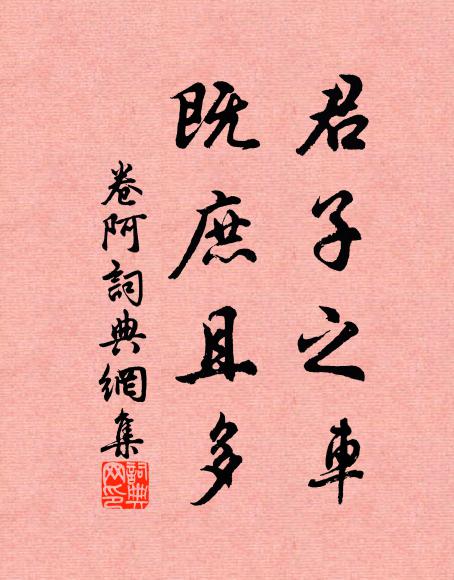 君子之車
既庶且多
卷阿詞典網集
詞典网印